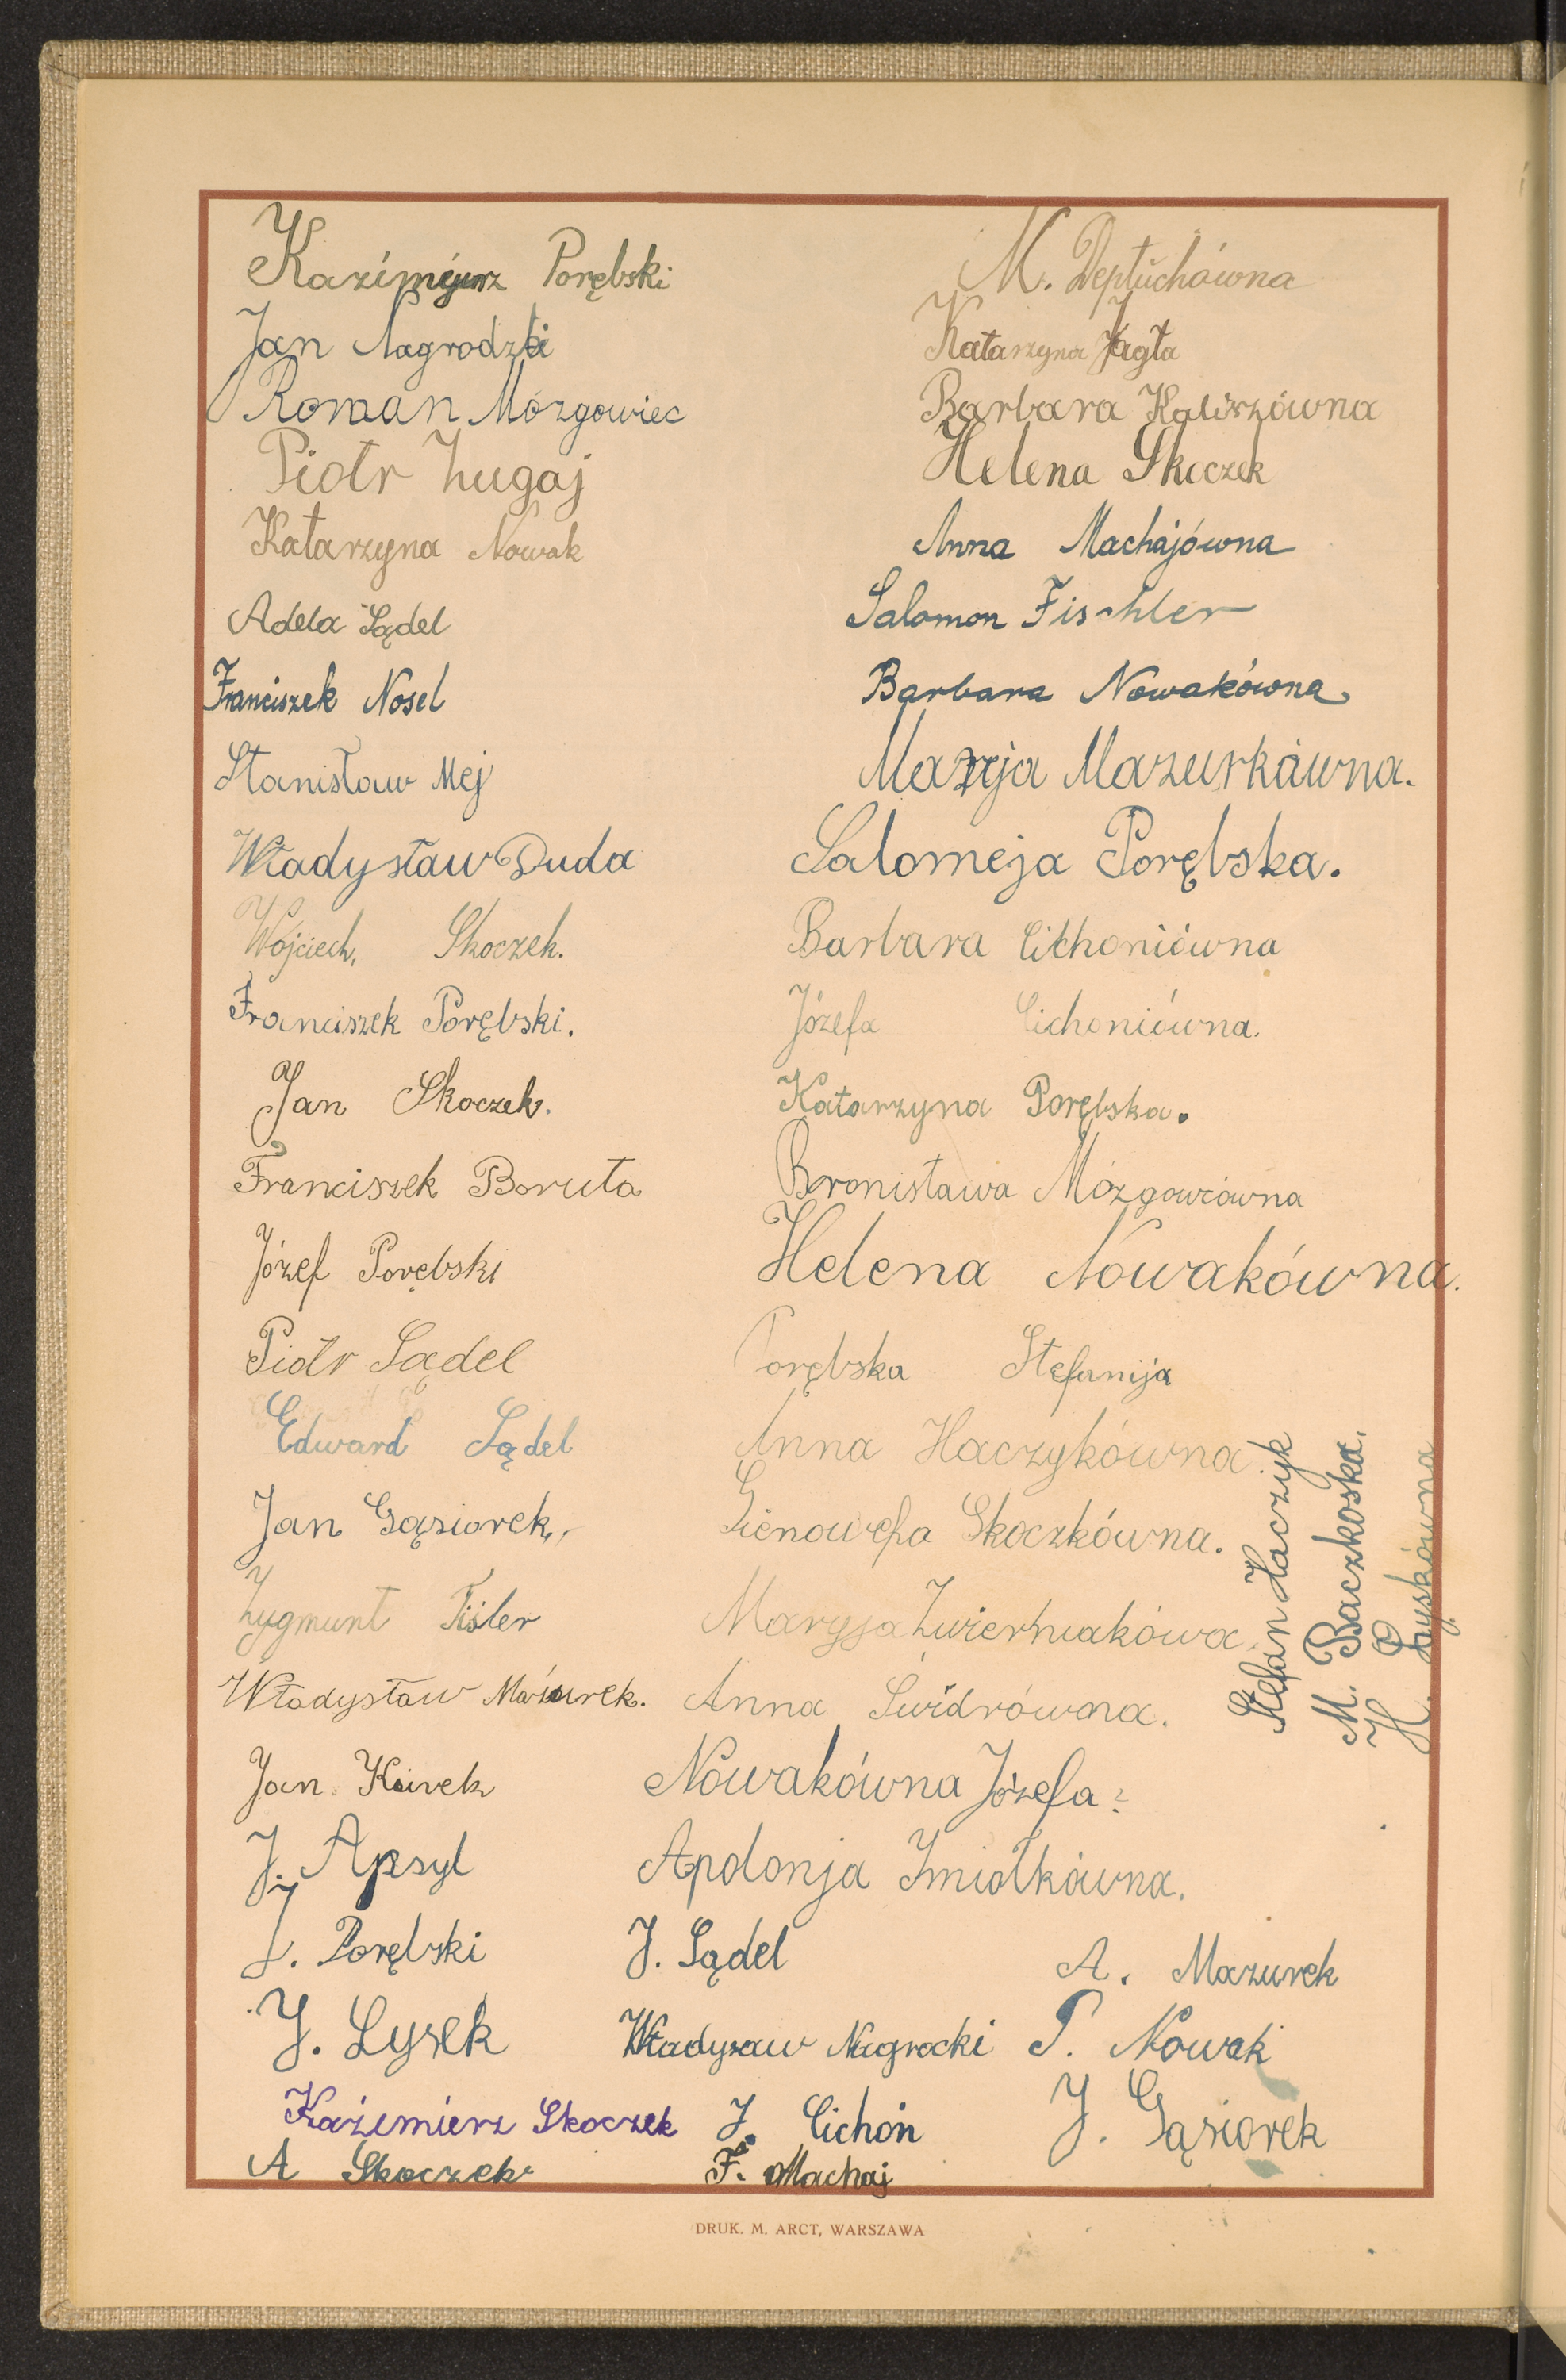 Kazimierz Porębski
M. Deptuchówna
Jan Nagrodzki
Katarzyna Jagła
Roman Mózgowiec
Barbara Kaliszówna
Piotr Zugaj
Helena Skoczek
Katarzyna Nowak
Anna Machajówna
Adela Sądel
Salomon Fischler
Franciszek Nosel
Barbara Nowakówna
Stanisław Mej
Marja Mazurkówna.
Władysław Duda
Salomeja Porębska.
Wojciech, Skoczek.
Barbara Cichoniówna
Franciszek Porębski.
Józefa Cichoniówna.
Jan Skoczek.
Katarzyna Porębska.
Franciszek Boruta
Bronisława Mózgowiówna
Józef Porębski
Helena Nowakówna.
Piotr Sądel
Porębska Stefanija
Edward Sądel
Anna Haczykówna.
Jan Gąsiorek,
Gienowefa Skoczkówna.
Zygmunt Fiśler
Maryja
Władysław Mazurek.
Anna Świdrówna.
Stefan Haczyk
M. Baczkoska.
H. Łyskówna
Jan
Nowakówna Józefa.
J. Apsyl
Apolonja Żmiołkówna.
J. Porębski
J. Sądel
A. Mazurek
J. Łysek
Władysaw Nagrocki
P. Nowak
Kaźimierz Skoczek
J. Cichoń
J. Gąsiorek
A Skoczek
F. Machaj
DRUK. M. ARCT, WARSZAWA